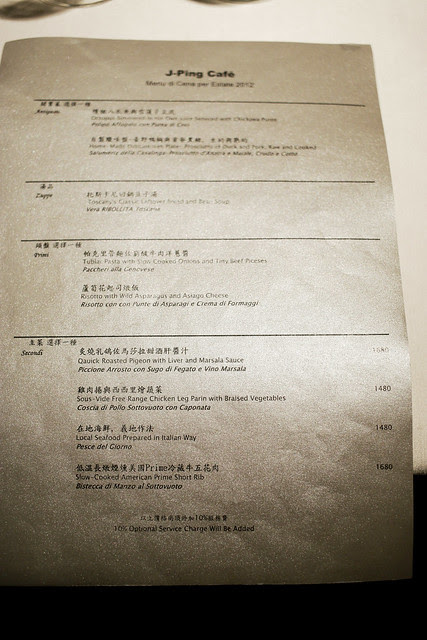 J-Ping Café
Menu di Cena per Estate 2012
開胃菜 選擇一種
Antipasti
Octopus Simmered in Its Own Juice Served with Chickpea Puree
Polipo Affogato con Purea di Ceci
Home-Made Italian Plate: Prosciutto of Duck and Pork, Raw and Cooked
Salumeria della Casalinga: Prosciutto d'Anatra e Maiale, Crudo e Cotto
湯品
Zuppe
托斯卡尼
Tuscany's Classic Leftover Bread and Bean Soup
Vera RIBOLLITA Toscana
頭盤 選擇一種
Primi
帕克里管麵佐 牛肉洋蔥醬
Tublar Pasta with Slow Cooked Onions and Tiny Beef Pieceses
Paccheri alla Genovese
蘆筍花起司燉飯
Risotto with Wild Asparagus and Asiago Cheese
Risotto con con Punte di Asparagi e Crema di Formaggi
主菜 選擇一種
Secondi
炙燒乳鴿佐馬莎拉甜酒肝醬汁 1680
Qauick Roasted Pigeon with Liver and Marsala Sauce
Piccione Arrosto con Sugo di Fegato e Vino Marsala
雞肉捲與西西里燴蔬菜 1480
Sous-Vide Free Range Chicken Leg Parin with Braised Vegetables
Coscia di Pollo Sottovuoto con Caponata
在地海鮮，義地作法 1480
Local Seafood Prepared in Italian Way
Pesce del Giorno
低溫長燉煙燻美國Prime冷藏牛五花肉 1680
Slow-Cooked American Prime Short Rib
Bistecca di Manzo al Sottovuoto
以上價格尚須外加10%服務費
10% Optional Service Charge Will Be Added